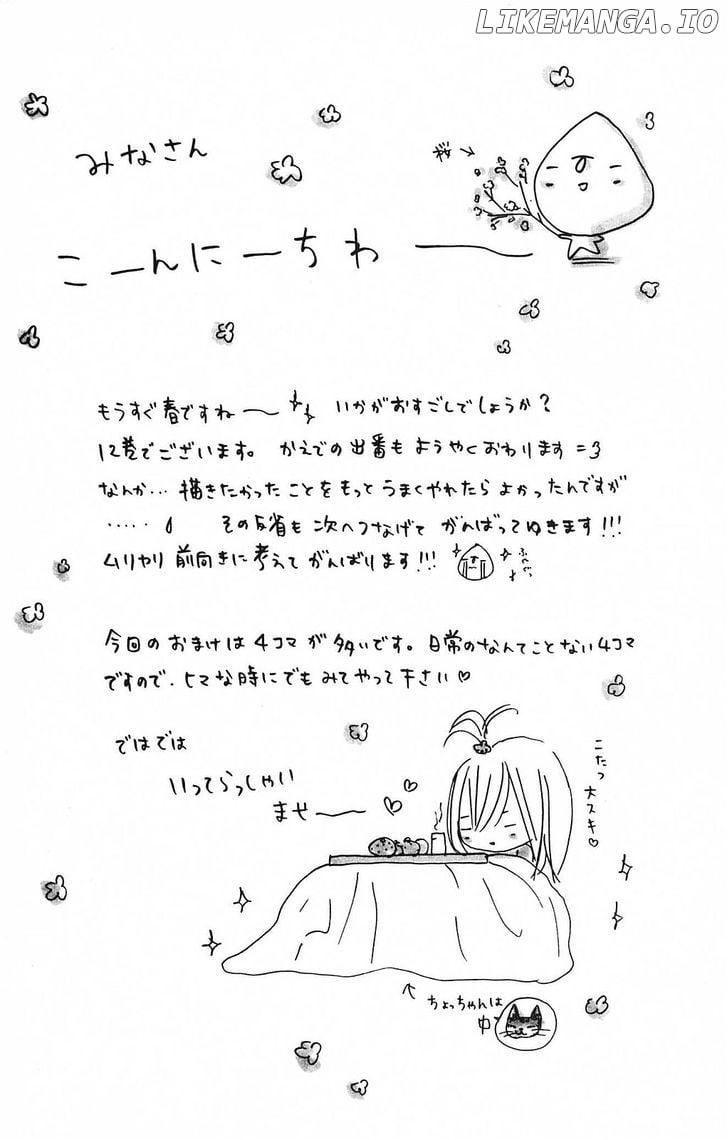 LIKEMANGA.IO
みなさん
桜→
こーんにーちわー
もうすぐ春ですねー いかがおすごしでしょうか?
12巻でございます。 かえでの出番もようやくおわります=3
なんか… 描きたかったことをもっとうまくやれたらよかったんですが
…‥ その反省も次へつなげてがんばってゆきます!!!
ムリヤリ前向きに考えてがんばります!!!
今回のおまけは4コマが多いです。日常のなんてことない4コマ
ですので、ヒマな時にでもみてやって下さい♡
ではでは
いってらっしゃい
ませー
こたつ大スキ♡
ちょっちゃんは
中